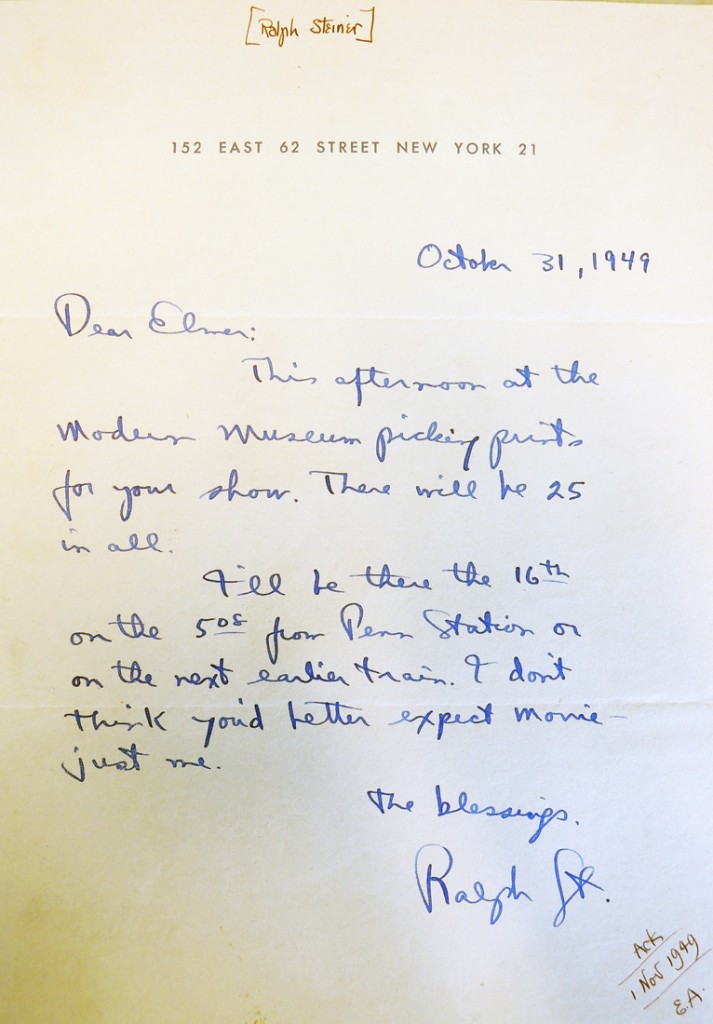 [Ralph Steiner]
152 EAST 62 STREET NEW YORK 21
October 31, 1949
Dear Elmer:
This afternoon at the
Modern Museum picking prints
for your show. There will be 25
in all.
I'll be there the 16th
on the 5 08 from Penn Station or
on the next earlier train. I don't
think you'd better expect movie –
just me.
The blessings.
Ralph St.
Ack
1 Nov 1949
E.A.